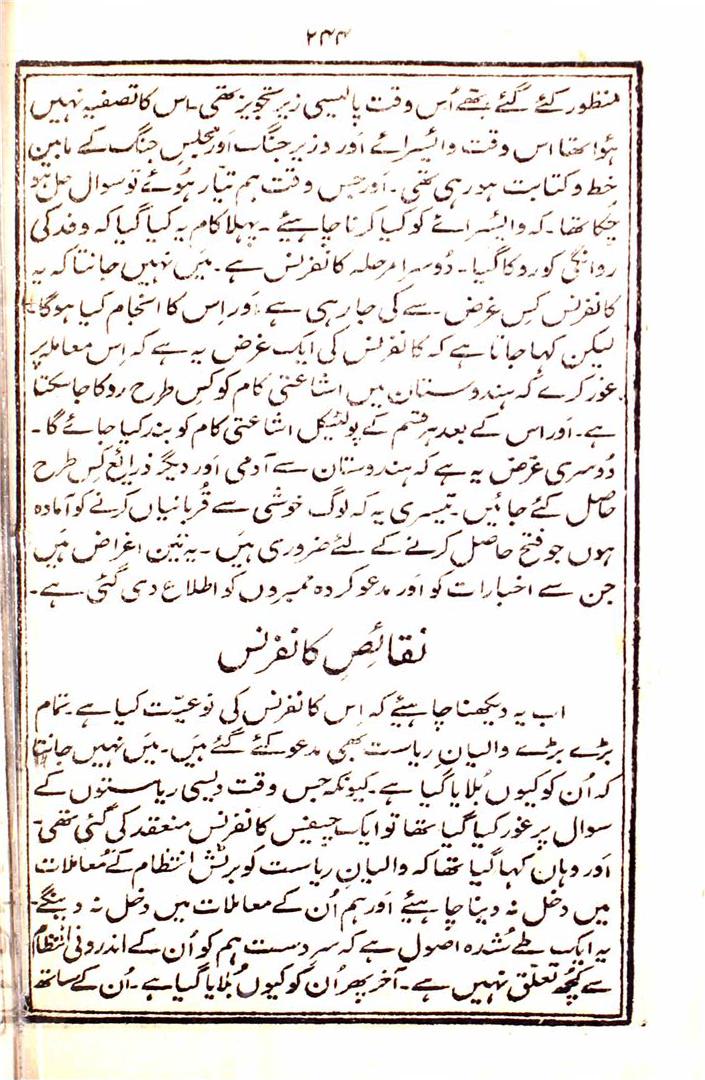 ۲۴۴
منظور کئے گئے تھے اُس وقت پالیسی زیر تجویز تھی۔ اس کا تصفیہ نہیں
ہوا تھا اس وقت وائیسرائے اَور وزیر جنگ اَور مجلسِ جنگ کے مابین
خط و کتابت ہو رہی تھی۔ اَور جس وقت ہم تیّار ہُوئے تو سوال حل ہو
چکا تھا۔ کہ وائیسرائے کو کیا کرنا چاہیئے۔ پہلا کام یہ کیا گیا کہ وفد کی
روانگی کو روکا گیا۔ دُوسرا مرحلہ کانفرنس ہے۔ میَں نہیں جانتا کہ یہ
کانفرنس کِس غرض سے کی جا رہی ہے۔ اَور اِس کا انجام کیا ہوگا۔
لیکن کہا جاتا ہے کہ کانفرنس کی ایک غرض یہ ہے کہ اِس معاملہ پر
غور کرے کہ ہندوستان میں اشاعتی کام کو کِس طرح روکا جا سکتا
ہے۔ اَور اس کے بعد ہر قسم کے پولٹیکل اشاعتی کام کو بند کیا جائے گا۔
دُوسری غرض یہ ہے کہ ہندوستان سے آدمی اَور دیگر ذرائع کِس طرح
حاصل کئے جائیں۔ تیسری یہ کہ لوگ خوشی سے قُربانیاں کرنے کو آمادہ
ہوں جو فتح حاصل کرنے کے لئے ضروری ہیَں۔ یہ تین اغراض ہیَں
جن سے اخبارات کو اَور مدعو کردہ ممبروں کو اطلاع دی گئی ہے۔
نقائصِ کانفرنس
اب یہ دیکھنا چاہیئے کہ اِس کانفرنس کی نوعیّت کیا ہے۔ تمام
بڑے بڑے والیانِ ریاست بھی مدعو کئے گئے ہیَں۔ میَں نہیں جانتا
کہ اُن کو کیوں بُلایا گیا ہے۔ کیونکہ جس وقت دیسی ریاستوں کے
سوال پر غور کیا گیا تھا تو ایک چیفس کانفرنس منعقد کی گئی تھی۔
اَور وہاں کہا گیا تھا کہ والیانِ ریاست کو برٹش انتظام کے مُعاملات
میں دخل نہ دینا چاہیئے اَور ہم اُن کے معاملات میں دخل نہ دینگے۔
یہ ایک طے شُدہ اصول ہے کہ سرِدست ہم کو اُن کے اندرونی انتظام
سے کچُھ تعلّق نہیں ہے۔ آخر پھر اُن کو کیوں بُلایا گیا ہے۔ اُن کے ساتھ